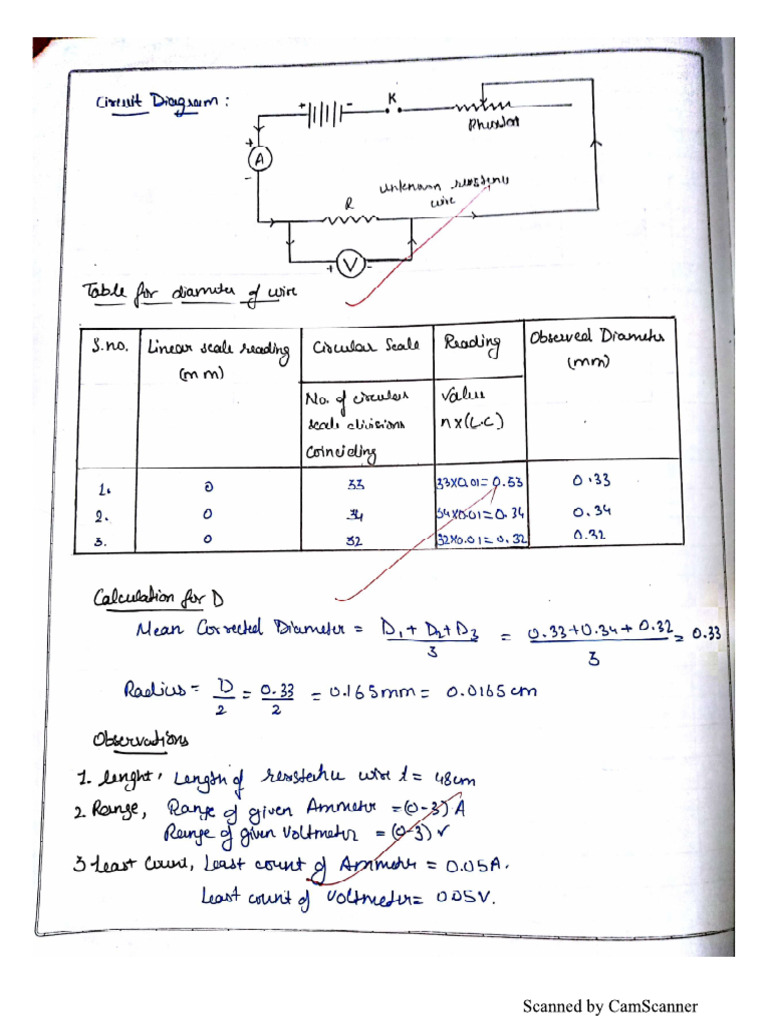 Circuit Diagram :
+ - K
Rheostat
+
A
-
unknown resistance
wire
R
+ V -
Table for diameter of wire
S.no. Linear scale reading (mm) Circular Scale Reading Observed Diameter (mm)
No. of circular scale divisions Coinciding Value n x (L.C)
1. 0 33 33X0.01 = 0.53 0.33
2. 0 34 34X0.01 = 0.34 0.34
3. 0 32 32X0.01 = 0.32 0.32
Calculation for D
Mean Corrected Diameter = D1 + D2 + D3 / 3 = 0.33+0.34+0.32 / 3 = 0.33
Radius = D / 2 = 0.33 / 2 = 0.165mm = 0.0165cm
Observations
1. lenght, Length of resistive wire l = 48cm
2. Range, Range of given Ammeter = (0-3) A
Range of given Voltmeter = (0-3) v
3 Least Count, Least count of Ammeter = 0.05A.
Least count of Voltmeter = 0.05V.
Scanned by CamScanner